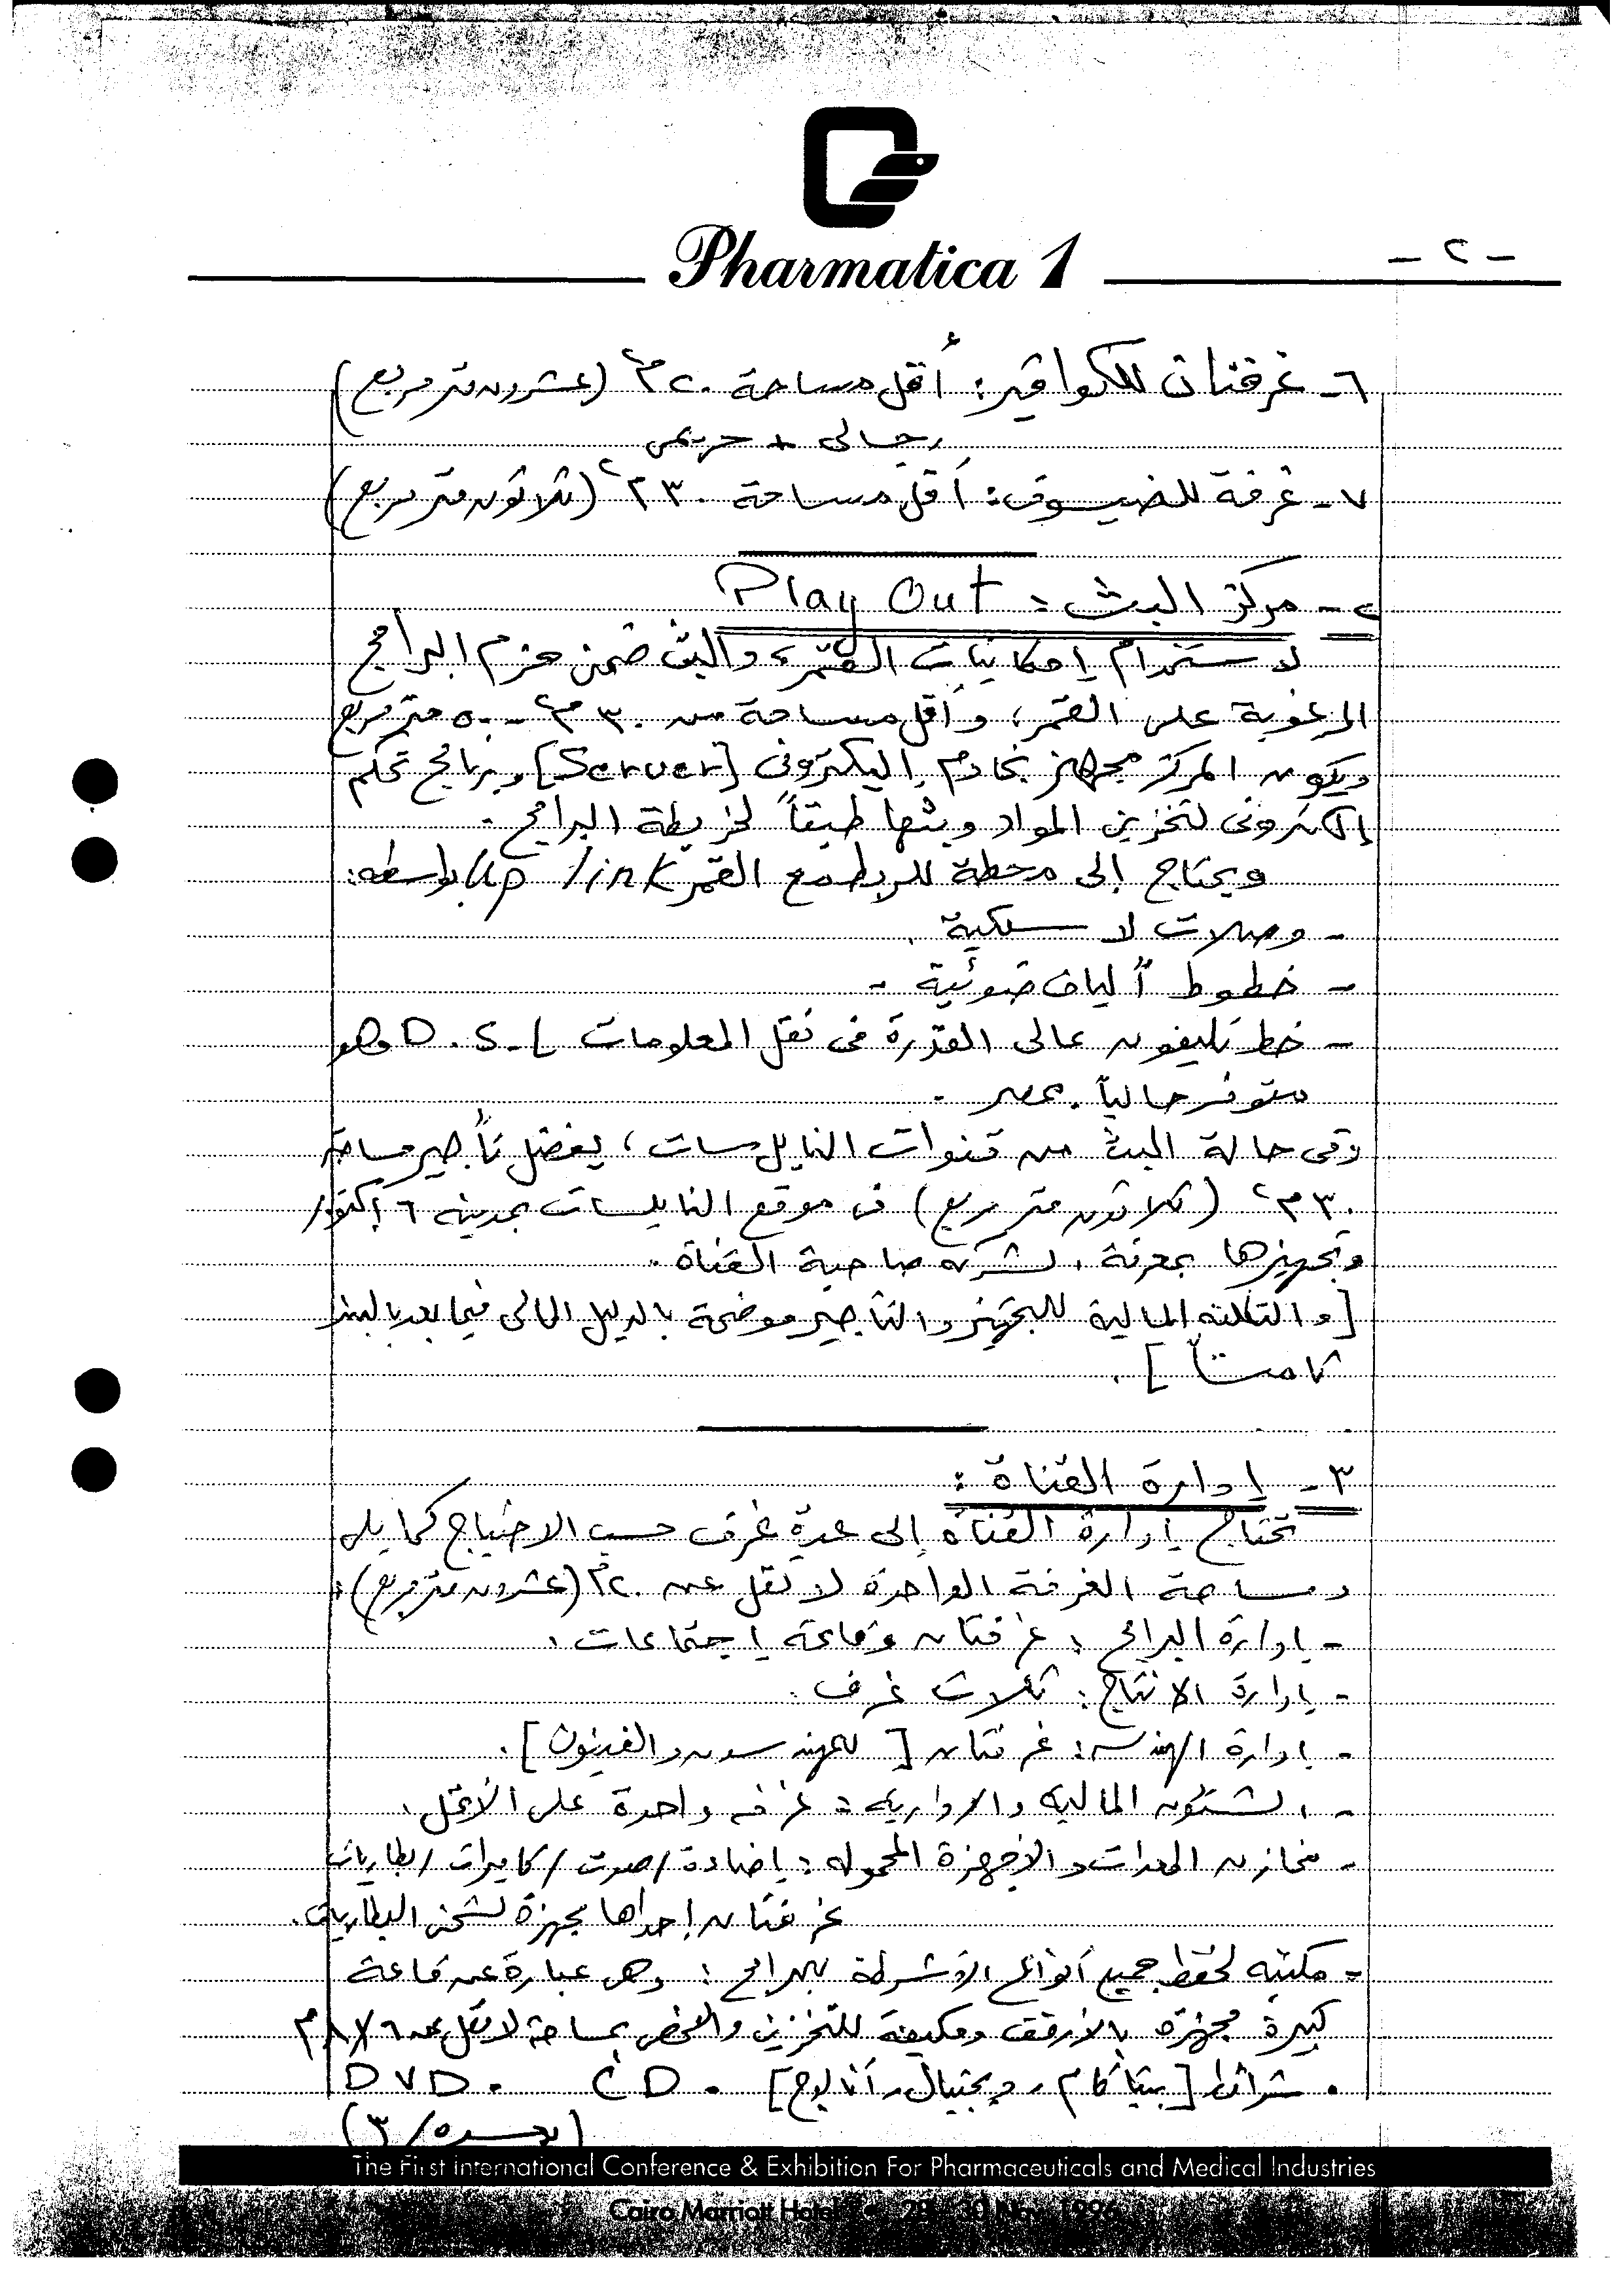 Pharmatica 1
- ٢ -
٦- غرفتان للكوافير: أقل مساحة ٢٠ م٢ (عشرون متر مربع)
رجالى + حريمى
٧- غرفة للضيوف: أقل مساحة ٣٠ م٢ (ثلاثون متر مربع)
٢- مركز البث: Play Out
لاستخدام إمكانيات القمر، والبث ضمن حزم البرامج
المرغوبة على القمر، وأقل مساحة من ٣٠ م٢ - ٥٠ متر مربع
ويكون المركز مجهز بخادم إليكترونى [Server] وبرنامج تحكم
إلكترونى لتخزين المواد وبثها طبقاً لخريطة البرامج.
ويحتاج إلى محطة للربط مع القمر up link بواسطه:
- وصلات لا سلكية.
- خطوط ألياف ضوئية.
- خط تليفون عالى القدرة فى نقل المعلومات D.S.L وهو
متوفر حالياً بمصر.
وفى حالة البث من قنوات النايل سات، يفضل تأجير مساحه
٣٠ م٢ (ثلاثون متر مربع) فى موقع النايلسات بمدينه ٦ أكتوبر
وتجهيزها بمعرفة الشركه صاحبة القناة.
[والتكلفه المالية للتجهيز والتأجير موضحة بالدليل المالى فيما بعد بالبند
ثامناً].
٣- إدارة القناة:
تحتاج إدارة القناة إلى عدة غرف حسب الاحتياج كما يلى
ومساحة الغرفة الواحدة لا تقل عن ٢٠ م٢ (عشرون متر مربع):
- إدارة البرامج: غرفتان وقاعة إجتماعات.
- إدارة الانتاج: ثلاث غرف.
- إدارة الهندسه: غرفتان [للمهندسون والفنيون].
- الشئون الماليه والاداريه: غرفه واحدة على الأقل.
- مخازن المعدات والأجهزة المحموله: إضاءة/صوت/كاميرات/بطاريات
غرفتان إحداها مجهزة لشحن البطاريات.
- مكتبه لحفظ جميع أنواع الأشرطة للبرامج: وهى عبارة عن قاعة
كبيرة مجهزه بالأرفف ومكيفة للتخزين والفحص بمساحة لا تقل عن ٦×٨ م
. شرائط [بيتا كام، ديجيتال، أنالوج] . CD . DVD
(بعده/٣)
The First International Conference & Exhibition For Pharmaceuticals and Medical Industries
Cairo Marriott Hotel 28 - 30 Nov. 1996